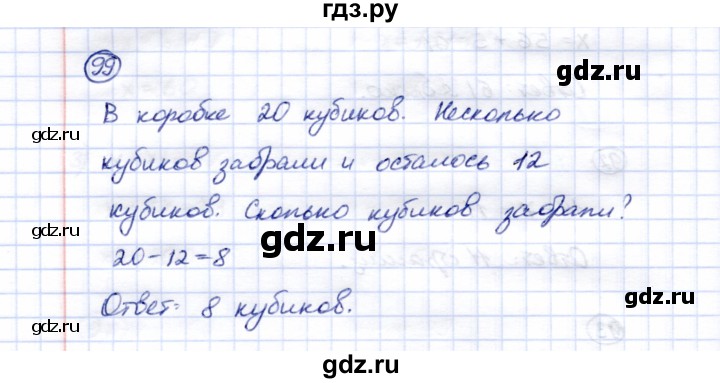 гдз.ру
99
gdz.ru
gdz.ru
В коробке 20 кубиков. Несколько
gdz.ru
gdz.ru
кубиков забрали и осталось 12
кубиков. Сколько кубиков забрали?
gdz.ru
gdz.ru
gdz.ru
20-12=8
Ответ: 8 кубиков.
gdz.ru
gdz.ru
gdz.ru